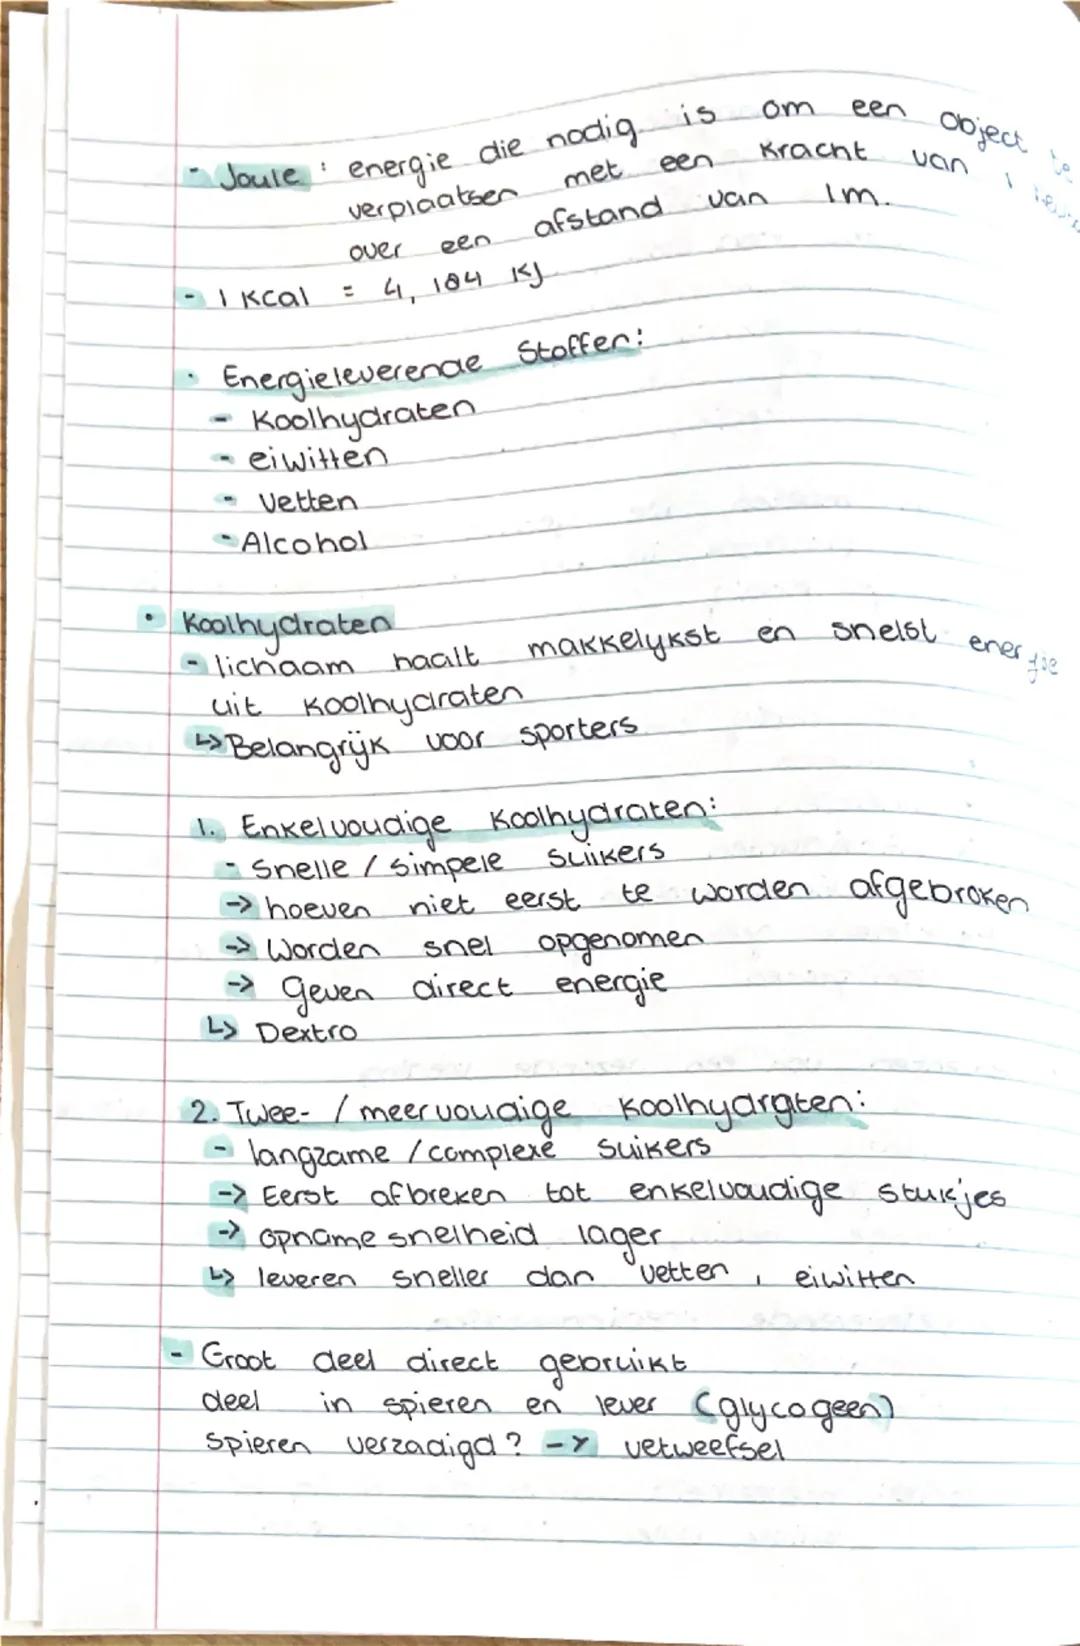 - Joule : energie die nodig is om een object te
verplaatsen met een kracht van 1
over een afstand van 1m.
- 1 Kcal = 4,184 KJ
• Energieleverende Stoffen:
- Koolhydraten
- eiwitten
- Vetten
- Alcohol
• Koolhydraten
- lichaam haalt makkelykst en snelst energie
uit koolhydraten
↳ Belangrijk voor sporters
1. Enkelvoudige Koolhydraten:
- Snelle / simpele suikers
-> hoeven niet eerst te worden afgebroken
-> Worden snel opgenomen
-> Geven direct energie
↳ Dextro
2. Twee- / meervoudige Koolhydraten:
- langzame / complexe suikers
-> Eerst afbreken tot enkelvoudige stukjes
-> opname snelheid lager
↳ leveren sneller dan vetten, eiwitten
- Groot deel direct gebruikt
deel in spieren en lever (glycogeen)
Spieren verzadigd? -> vetweefsel